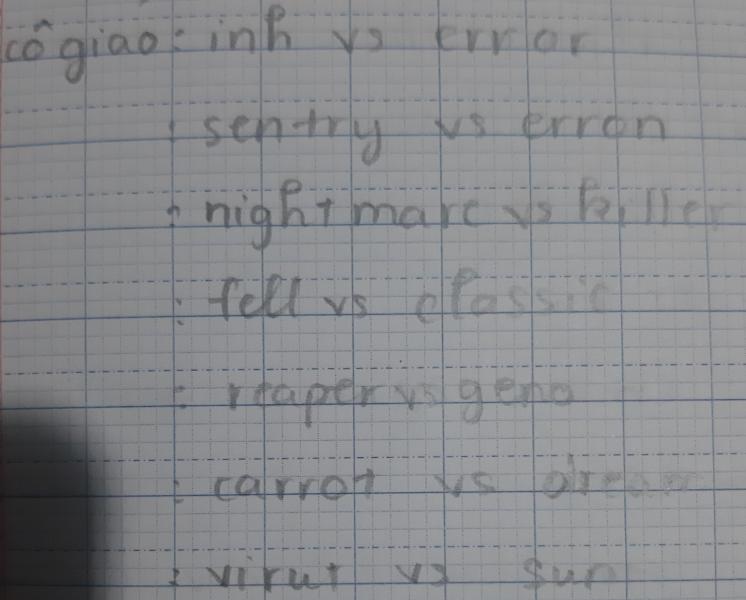 cô giao: inh vs error
: sentry vs erron
: nightmare vs killer
: fell vs classic
: reaper vs geno
: carrot vs dream
: virut vs sun